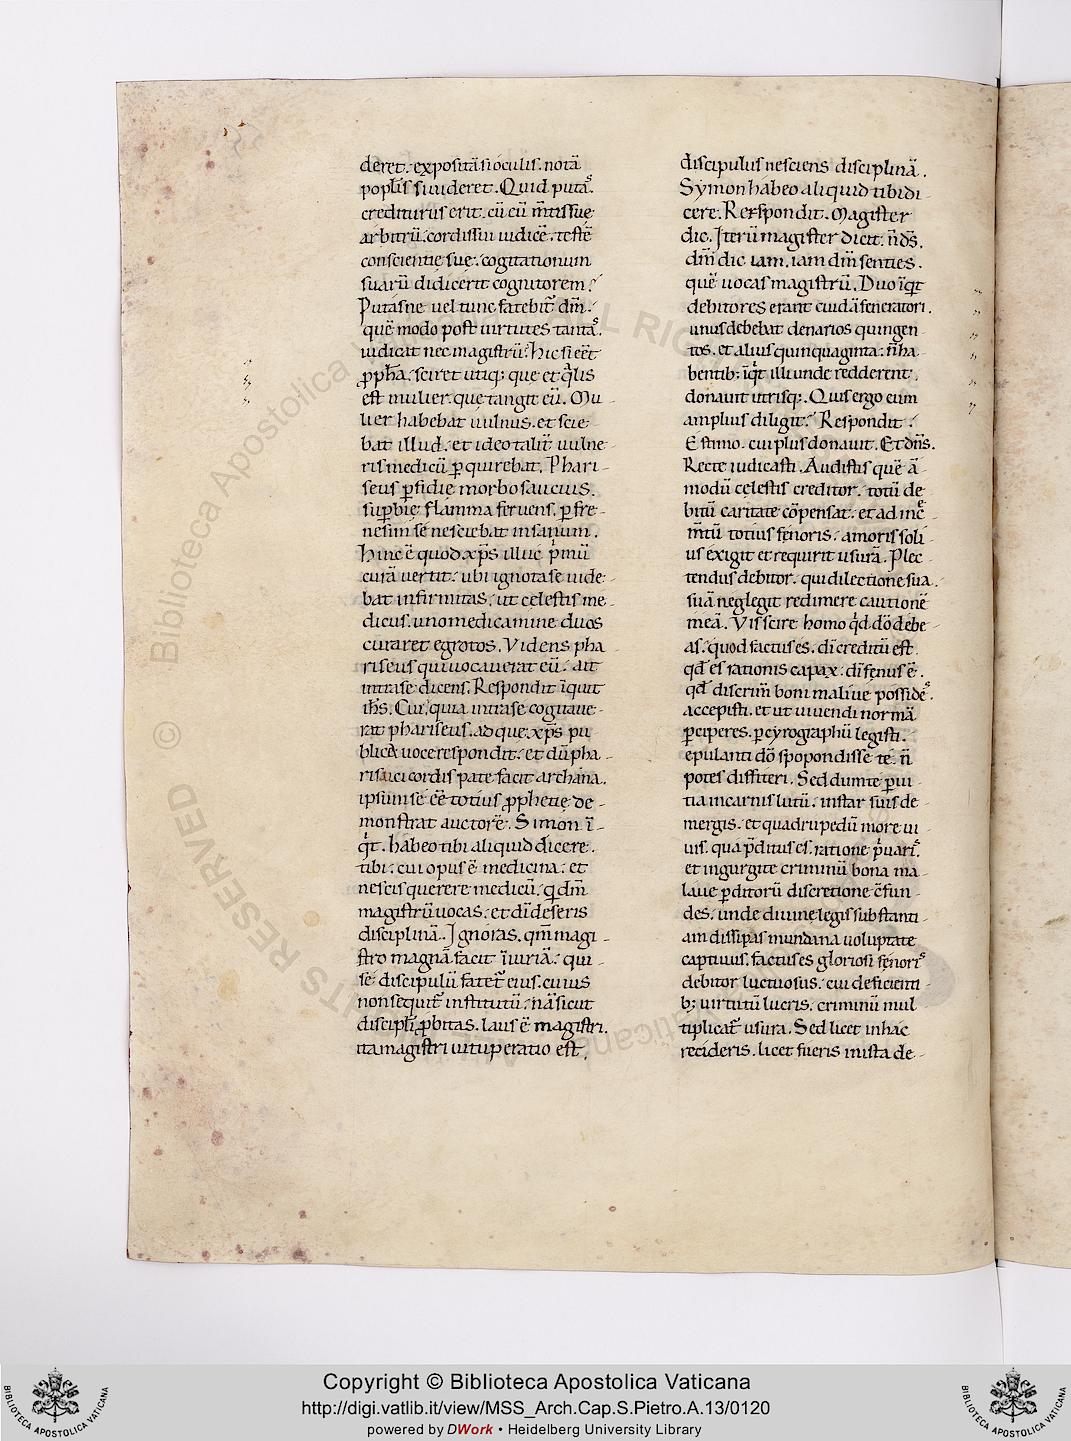 deret. expositā si oculis. notā
popl̄s si uideret. Quid putas̄.
crediturus erit. cū eū m̄tis suę
arbitrū. cordis sui iudicē. testē
conscientię suę. cogitationum
suarū didicerit cognitorem?
Putasne uel tunc fatebit̄ dn̄m.
quē modo post uirtutes tantas̄.
iudicat nec magistrū? hic si eēt
ꝓph̄a. sciret utiq; que et q̄lis
est mulier. que tangit eū. Mu
lier habebat uulnus. et scie
bat illud. et ideo talit̄ uulne-
ris medicū ꝑquirebat. Phari-
seus ꝑfidię morbo saucius.
suꝑbię flamma feruens. ꝑ fre-
nesim se nesciebat insanum.
Hinc ē quod xp̄s illuc p̄mū
curā uertit. ubi ignota se uide-
bat infirmitas. ut cęlestis me-
dicus. uno medicamine duos
curaret egrotos. Videns pha
riseus qui uocauerat eū. ait
intra se dicens. Respondit īquit
ih̄s. Cui. quia intra se cogitaue-
rat phariseus. ad que. xp̄s pu
blica uoce respondit. et dū pha-
risaici cordis patefacit archana.
ipsum se eē totius ꝓphetię de-
monstrat auctorē. Simon ī-
q̄t. habeo tibi aliquid dicere.
tibi. cui opus ē medicina. et
nescis querere medicū. q̄dm̄
magistrū uocas. et dīdeseris
disciplinā. Ignoras. qm̄ magi-
stro magnā facit īiuriā. qui-
se discipulū fatet̄ eius. cuius
non sequit̄ institutū. nā sicut
discipl̄i ꝓbitas. laus ē magistri.
ita magistri uituperatio est.
discipulus nesciens disciplinā.
Symon habeo aliquid tibi di-
cere. Respondit. Magister
dic. Iterū magister dicit. n̄ dn̄s.
dn̄m dic. iam. iam dn̄m senties.
quē uocas magistrū. Duo īq̄t
debitores erant cuidā feneratori.
unus debebat denarios quingen
tos. et alius quinquaginta. n̄ ha-
bentib; īq̄t illi unde redderent.
donauit utrisq;. Quis ergo eum
amplius diligit? Respondit?
Estimo. cui plus donauit. Et dn̄s.
Recte iudicasti. Audistis quē ā
modū cęlestis creditor. totū de
bitū caritate cōpensat. et ad incrē
m̄tū totius fęnoris. amoris soli
us exigit et requirit usurā. Plec-
tendus debitor. qui dilectione sua.
suā neglegit redimere cautionē
meā. Vis scire homo q̄d dō debe
as. quod factus es. dī creditū est.
qd̄ es rationis capax. dī fenus ē.
qd̄ discrim̄ boni maliue possides̄.
accepisti. et ut uiuendi normā
ꝑciperes. ꝑ cyrographū legisti.
epulanti dō spopondisse te. n̄
potes diffiteri. Sed dum te ꝑ ui-
tia in carnis lutū. instar suis de-
mergis. et quadrupedū more ui
uis. qua p̄ditus es. ratione p̄uaris̄.
et in gurgite criminū bona ma-
laue ꝑditorū discretione cōfun-
des. unde diuinę legis substanti-
am dissipas mundana uoluptate
captiuus. factus es gloriosi fęnoris̄
debitor luctuosus. cui deficienti-
b; uirtutū lucris. criminū mul-
tiplicat̄ usura. Sed licet in hac
recideris. licet fueris mista de-
Copyright © Biblioteca Apostolica Vaticana
http://digi.vatlib.it/view/MSS_Arch.Cap.S.Pietro.A.13/0120
powered by DWork • Heidelberg University Library
BIBLIOTECA APOSTOLICA VATICANA
BIBLIOTECA APOSTOLICA VATICANA
© Biblioteca Apostolica Vaticana ALL RIGHTS RESERVED